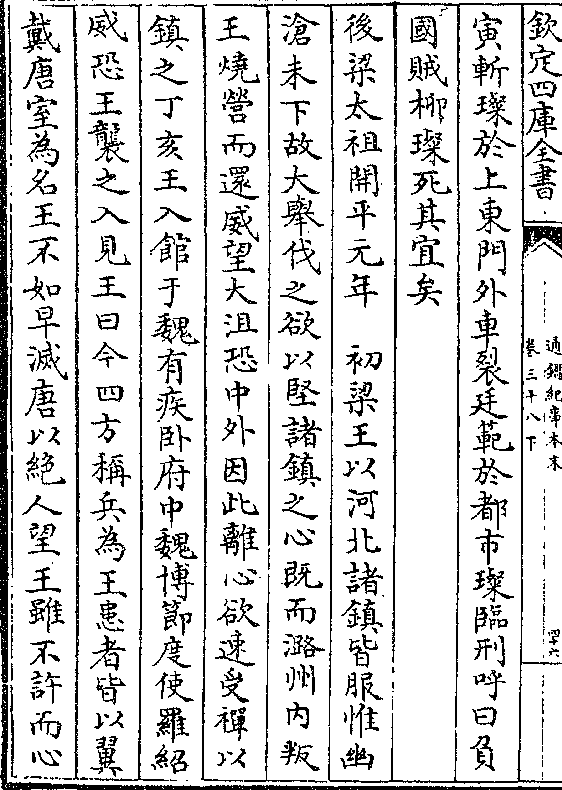 欽定四庫全書
通鑑紀事本末
卷三十八下
四十六
寅斬璨於上東門外車裂廷範於都市璨臨刑呼曰負
國賊柳璨死其宜矣
後梁太祖開平元年　初梁王以河北諸鎮皆服惟幽
滄未下故大舉伐之欲以堅諸鎮之心既而潞州内叛
王燒營而還威望大沮恐中外因此離心欲速受禪以
鎮之丁亥王入館于魏有疾卧府中魏博節度使羅紹
威恐王襲之入見王曰今四方稱兵為王患者皆以翼
戴唐室為名王不如早滅唐以絶人望王雖不許而心